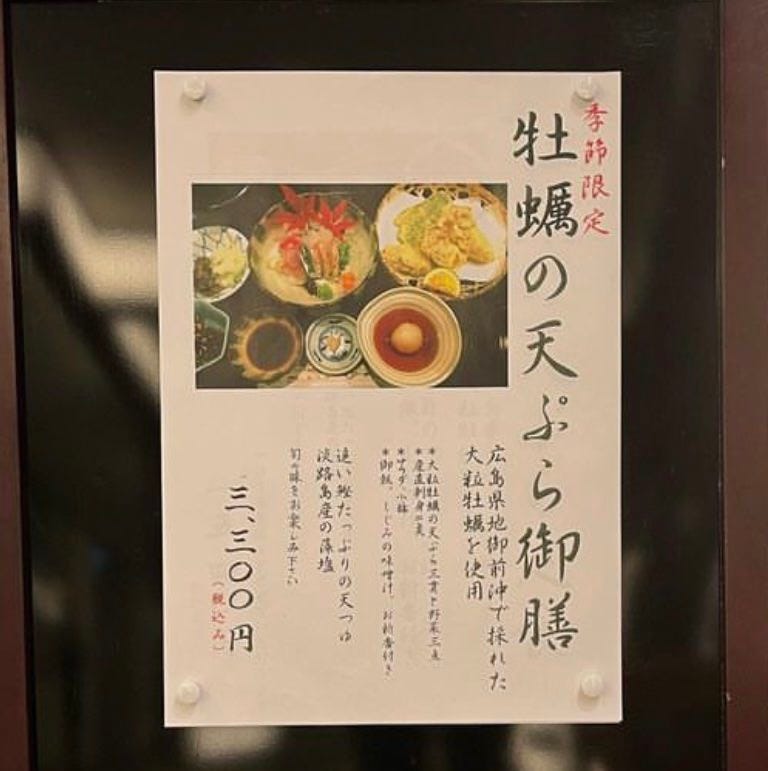 季節限定
牡蠣の天ぷら御膳
広島県地御前沖で採れた
大粒牡蠣を使用
*大粒牡蠣の天ぷら三貫と野菜三点
*産直刺身二炙
*サラダ、小鉢
*御飯、しじみの味噌汁、お新香付き
追い鰹たっぷりの天つゆ
淡路島産の藻塩
旬の味をお楽しみ下さい
三、三〇〇円
(税込み)